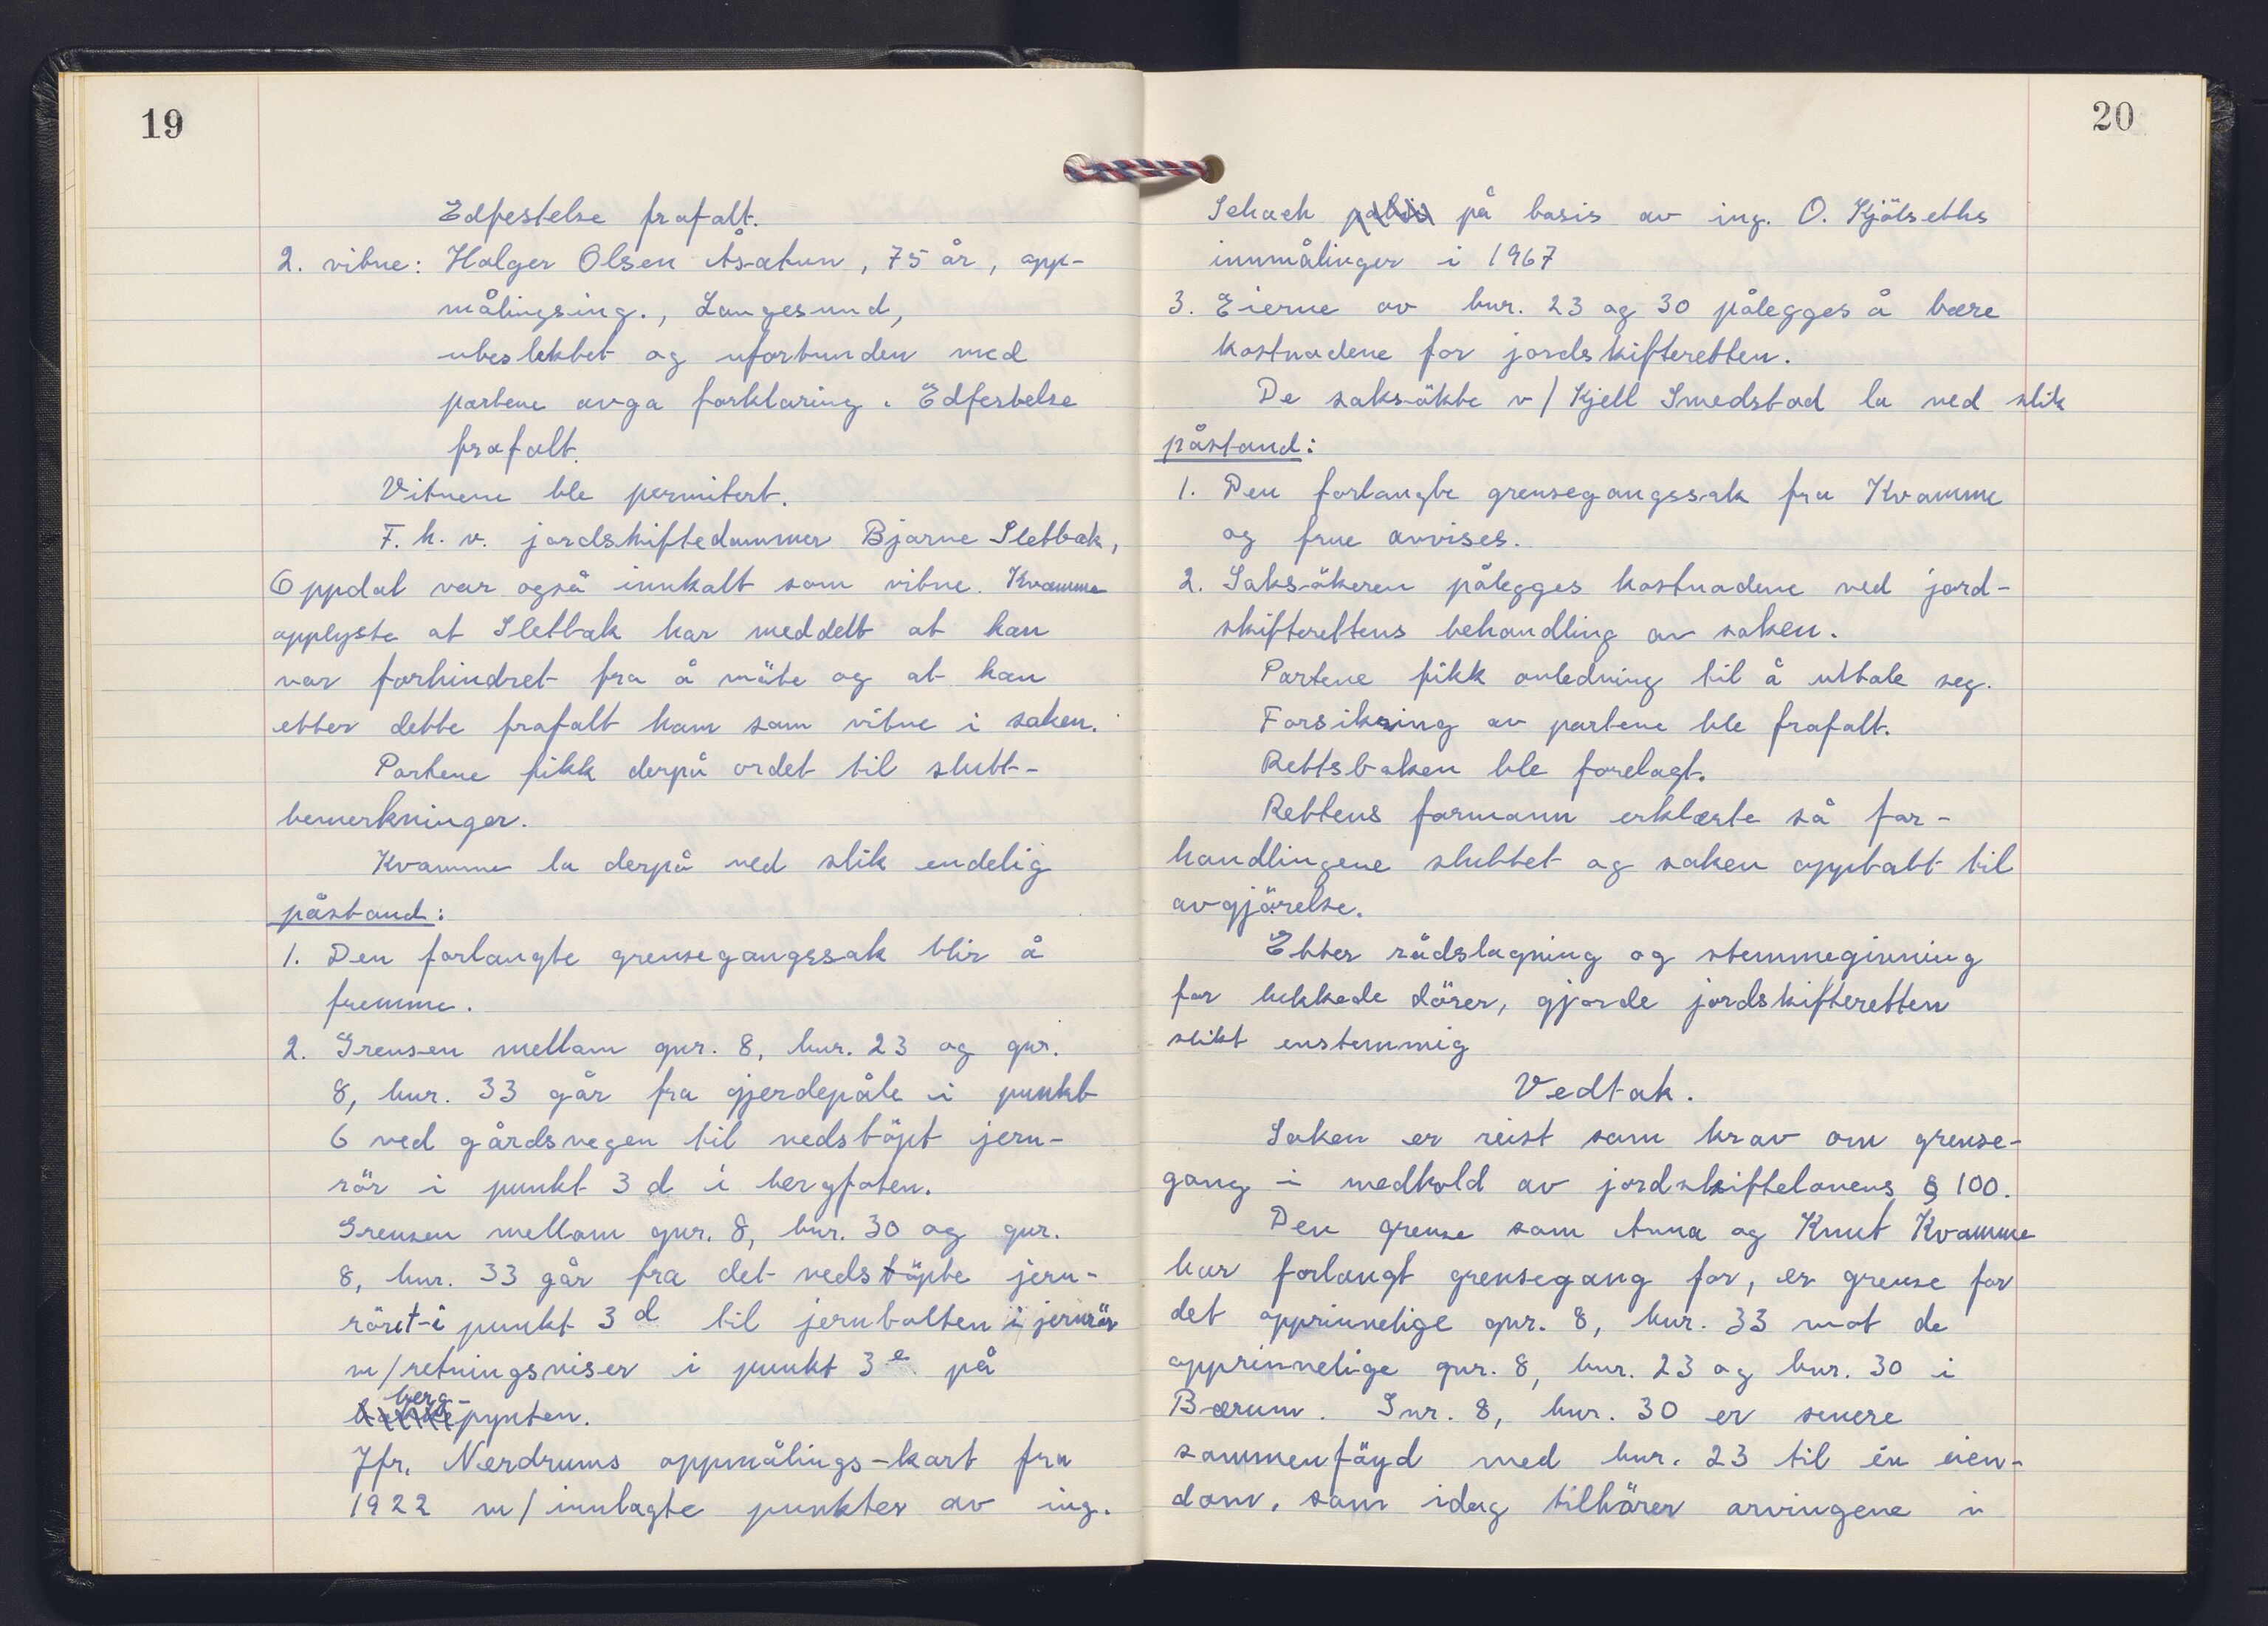 19
Edfestelse frafalt.
2. vitne: Holger Olsen Åsatun, 75 år, opp-
målingsing., Langesund,
ubeslektet og uforbunden med
partene avga forklaring. Edfestelse
frafalt.
Vitnene ble permitert.
F. h. v. jordskiftedommer Bjarne Sletbak,
Oppdal var også innkalt som vitne. Kvamme
opplyste at Sletbak har meddelt at han
var forhindret fra å möte og at han
etter dette frafalt ham som vitne i saken.
Partene fikk derpå ordet til slutt-
bemerkninger.
Kvamme la derpå ned slik endelig
påstand:
1. Den forlangte grensegangssak blir å
fremme.
2. Grensen mellom gnr. 8, bnr. 23 og gnr.
8, bnr. 33 går fra gjerdepåle i punkt
6 ved gårdsvegen til nedstöpt jern-
rör i punkt 3 d i bergfoten.
Grensen mellom gnr. 8, bnr. 30 og gnr.
8, bnr. 33 går fra det nedstöpte jern-
röret i punkt 3 d til jernbolten i jernrör
m/retningsviser i punkt 3 e på
berg-
pynten.
Jfr. Nerdrums oppmålings-kart fra
1922 m/innlagte punkter av ing.
20
Schach på basis av ing. O. Kjölseths
innmålinger i 1967
3. Eierne av bnr. 23 og 30 pålegges å bære
kostnadene for jordskifteretten.
De saksökte v/Kjell Smedstad la ned slik
påstand:
1. Den forlangte grensegangssak fra Kvamme
og frue avvises.
2. Saksökeren pålegges kostnadene ved jord-
skifterettens behandling av saken.
Partene fikk anledning til å uttale seg.
Forsikring av partene ble frafalt.
Rettsboken ble forelagt.
Rettens formann erklærte så for-
handlingene sluttet og saken opptatt til
avgjörelse.
Etter rådslagning og stemmegivning
for lukkede dörer, gjorde jordskifteretten
slikt enstemmig
Vedtak.
Saken er reist som krav om grense-
gang i medhold av jordskiftelovens § 100.
Den grense som Anna og Knut Kvamme
har forlangt grensegang for, er grense for
det opprinnelige gnr. 8, bnr. 33 mot de
opprinnelige gnr. 8, bnr. 23 og bnr. 30 i
Bærum. Gnr. 8, bnr. 30 er senere
sammenföyd med bnr. 23 til én eien-
dom, som idag tilhörer arvingene i